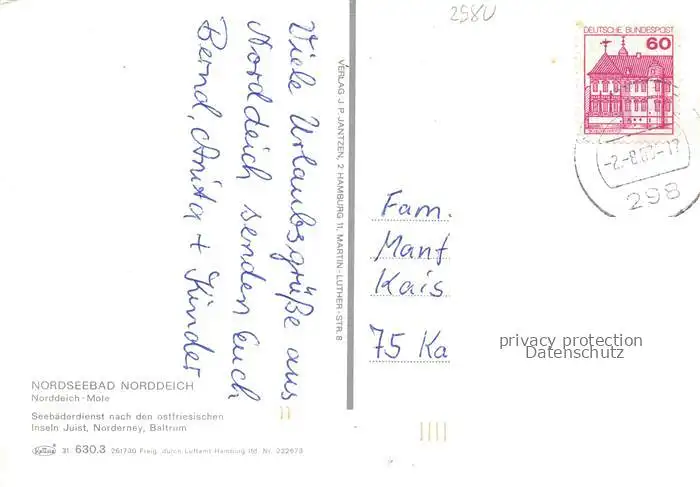 298U
Viele Urlaubsgrüße aus
Norddeich senden Euch
Bernd, Anita + Kinder
VERLAG J. P. JANTZEN, 2 HAMBURG 11, MARTIN-LUTHER-STR. 8
DEUTSCHE BUNDESPOST
60
298
Fam.
Manf
Kais
75 Ka
privacy protection
Datenschutz
NORDSEEBAD NORDDEICH
Norddeich-Mole
Seebäderdienst nach den ostfriesischen
Inseln Juist, Norderney, Baltrum
31 630.3 261730 Freig. durch Luftamt Hamburg lfd. Nr. 222673